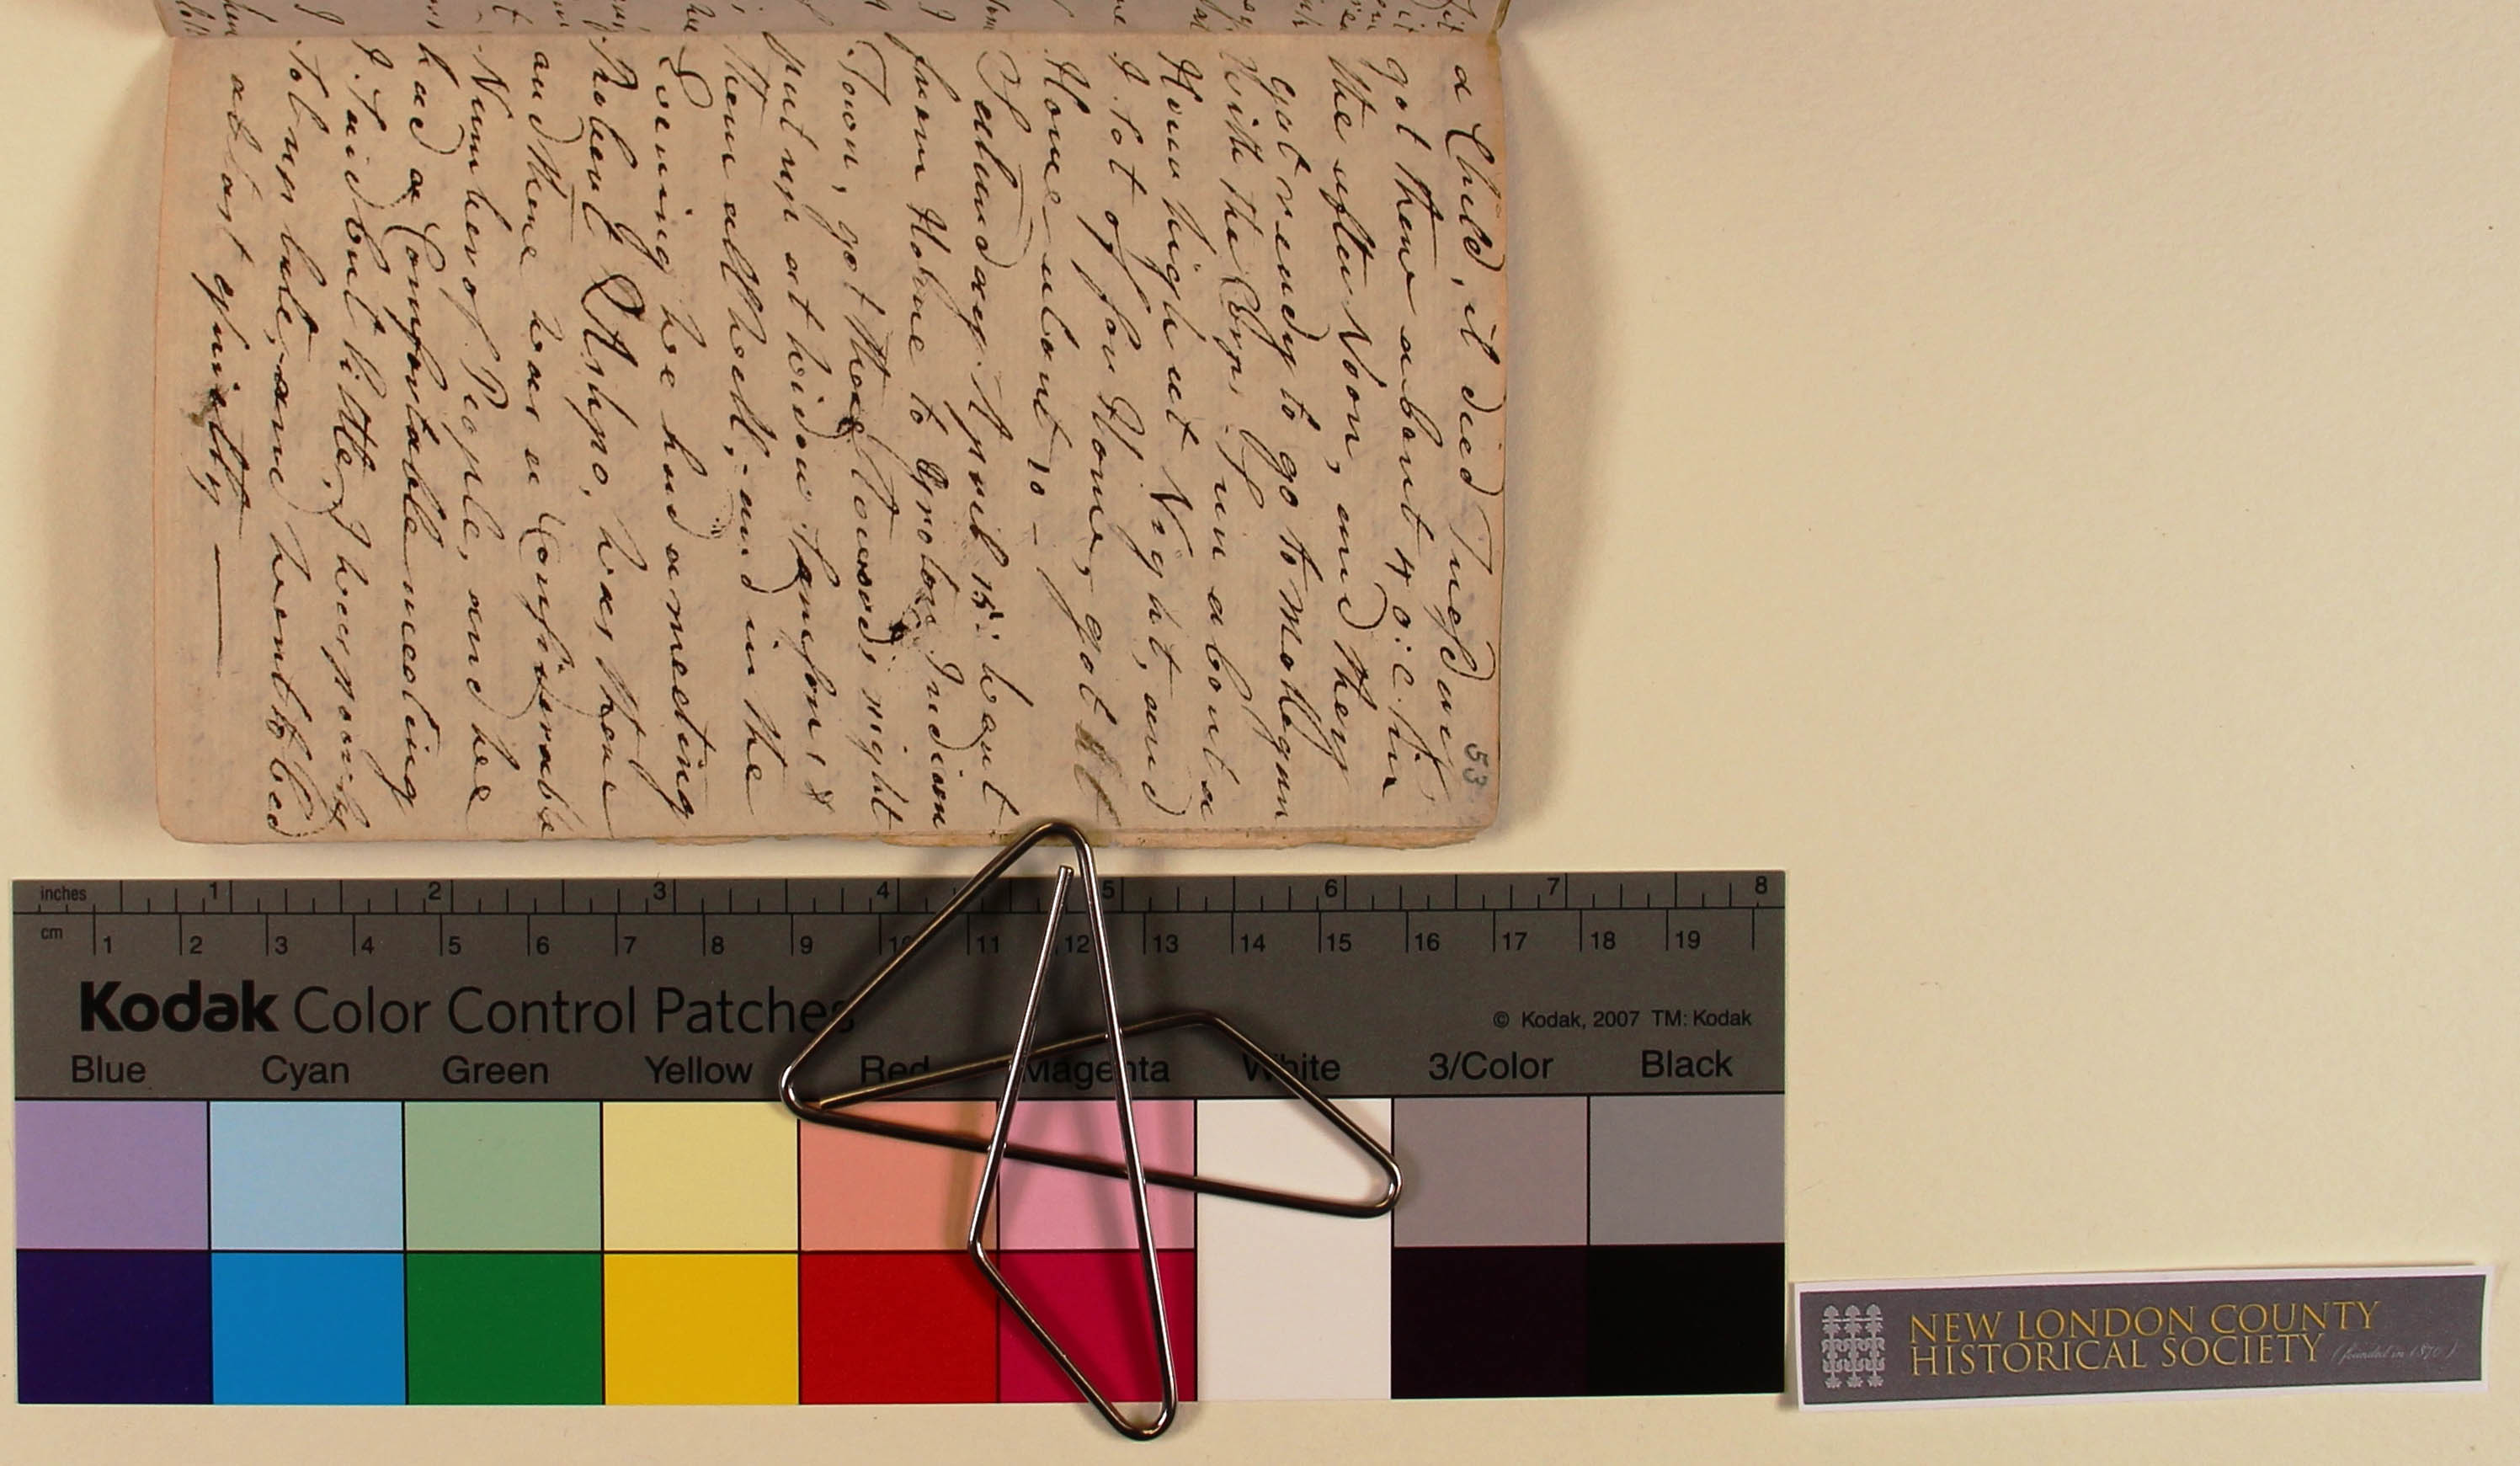 53
a Child, it died Tuesd and
got there about 4 o:c: in
the after Noon, and they
got ready to go to Mohegan
with the Corps. Sun about a
Hour high at Night, and
I Sot of for Home, got
Home about 10 –
Saturday. April 15: went
from Home to Groton Indian
Town, got there towards night
put up at widow Samson, &
them all well, – and in the
Evening we had a meeting
Robert Ashpo, was there
and there was a Considerable
Number of People, and we
had a Comfortable meeting
I Said but little, I was poorly
Sot up late, and went to bed
at last quietly ———
inches 1 2 3 4 5 6 7 8
cm 1 2 3 4 5 6 7 8 9 10 11 12 13 14 15 16 17 18 19
Kodak Color Control Patches
© Kodak, 2007 TM: Kodak
Blue Cyan Green Yellow Red Magenta White 3/Color Black
NEW LONDON COUNTY
HISTORICAL SOCIETY (founded in 1870)